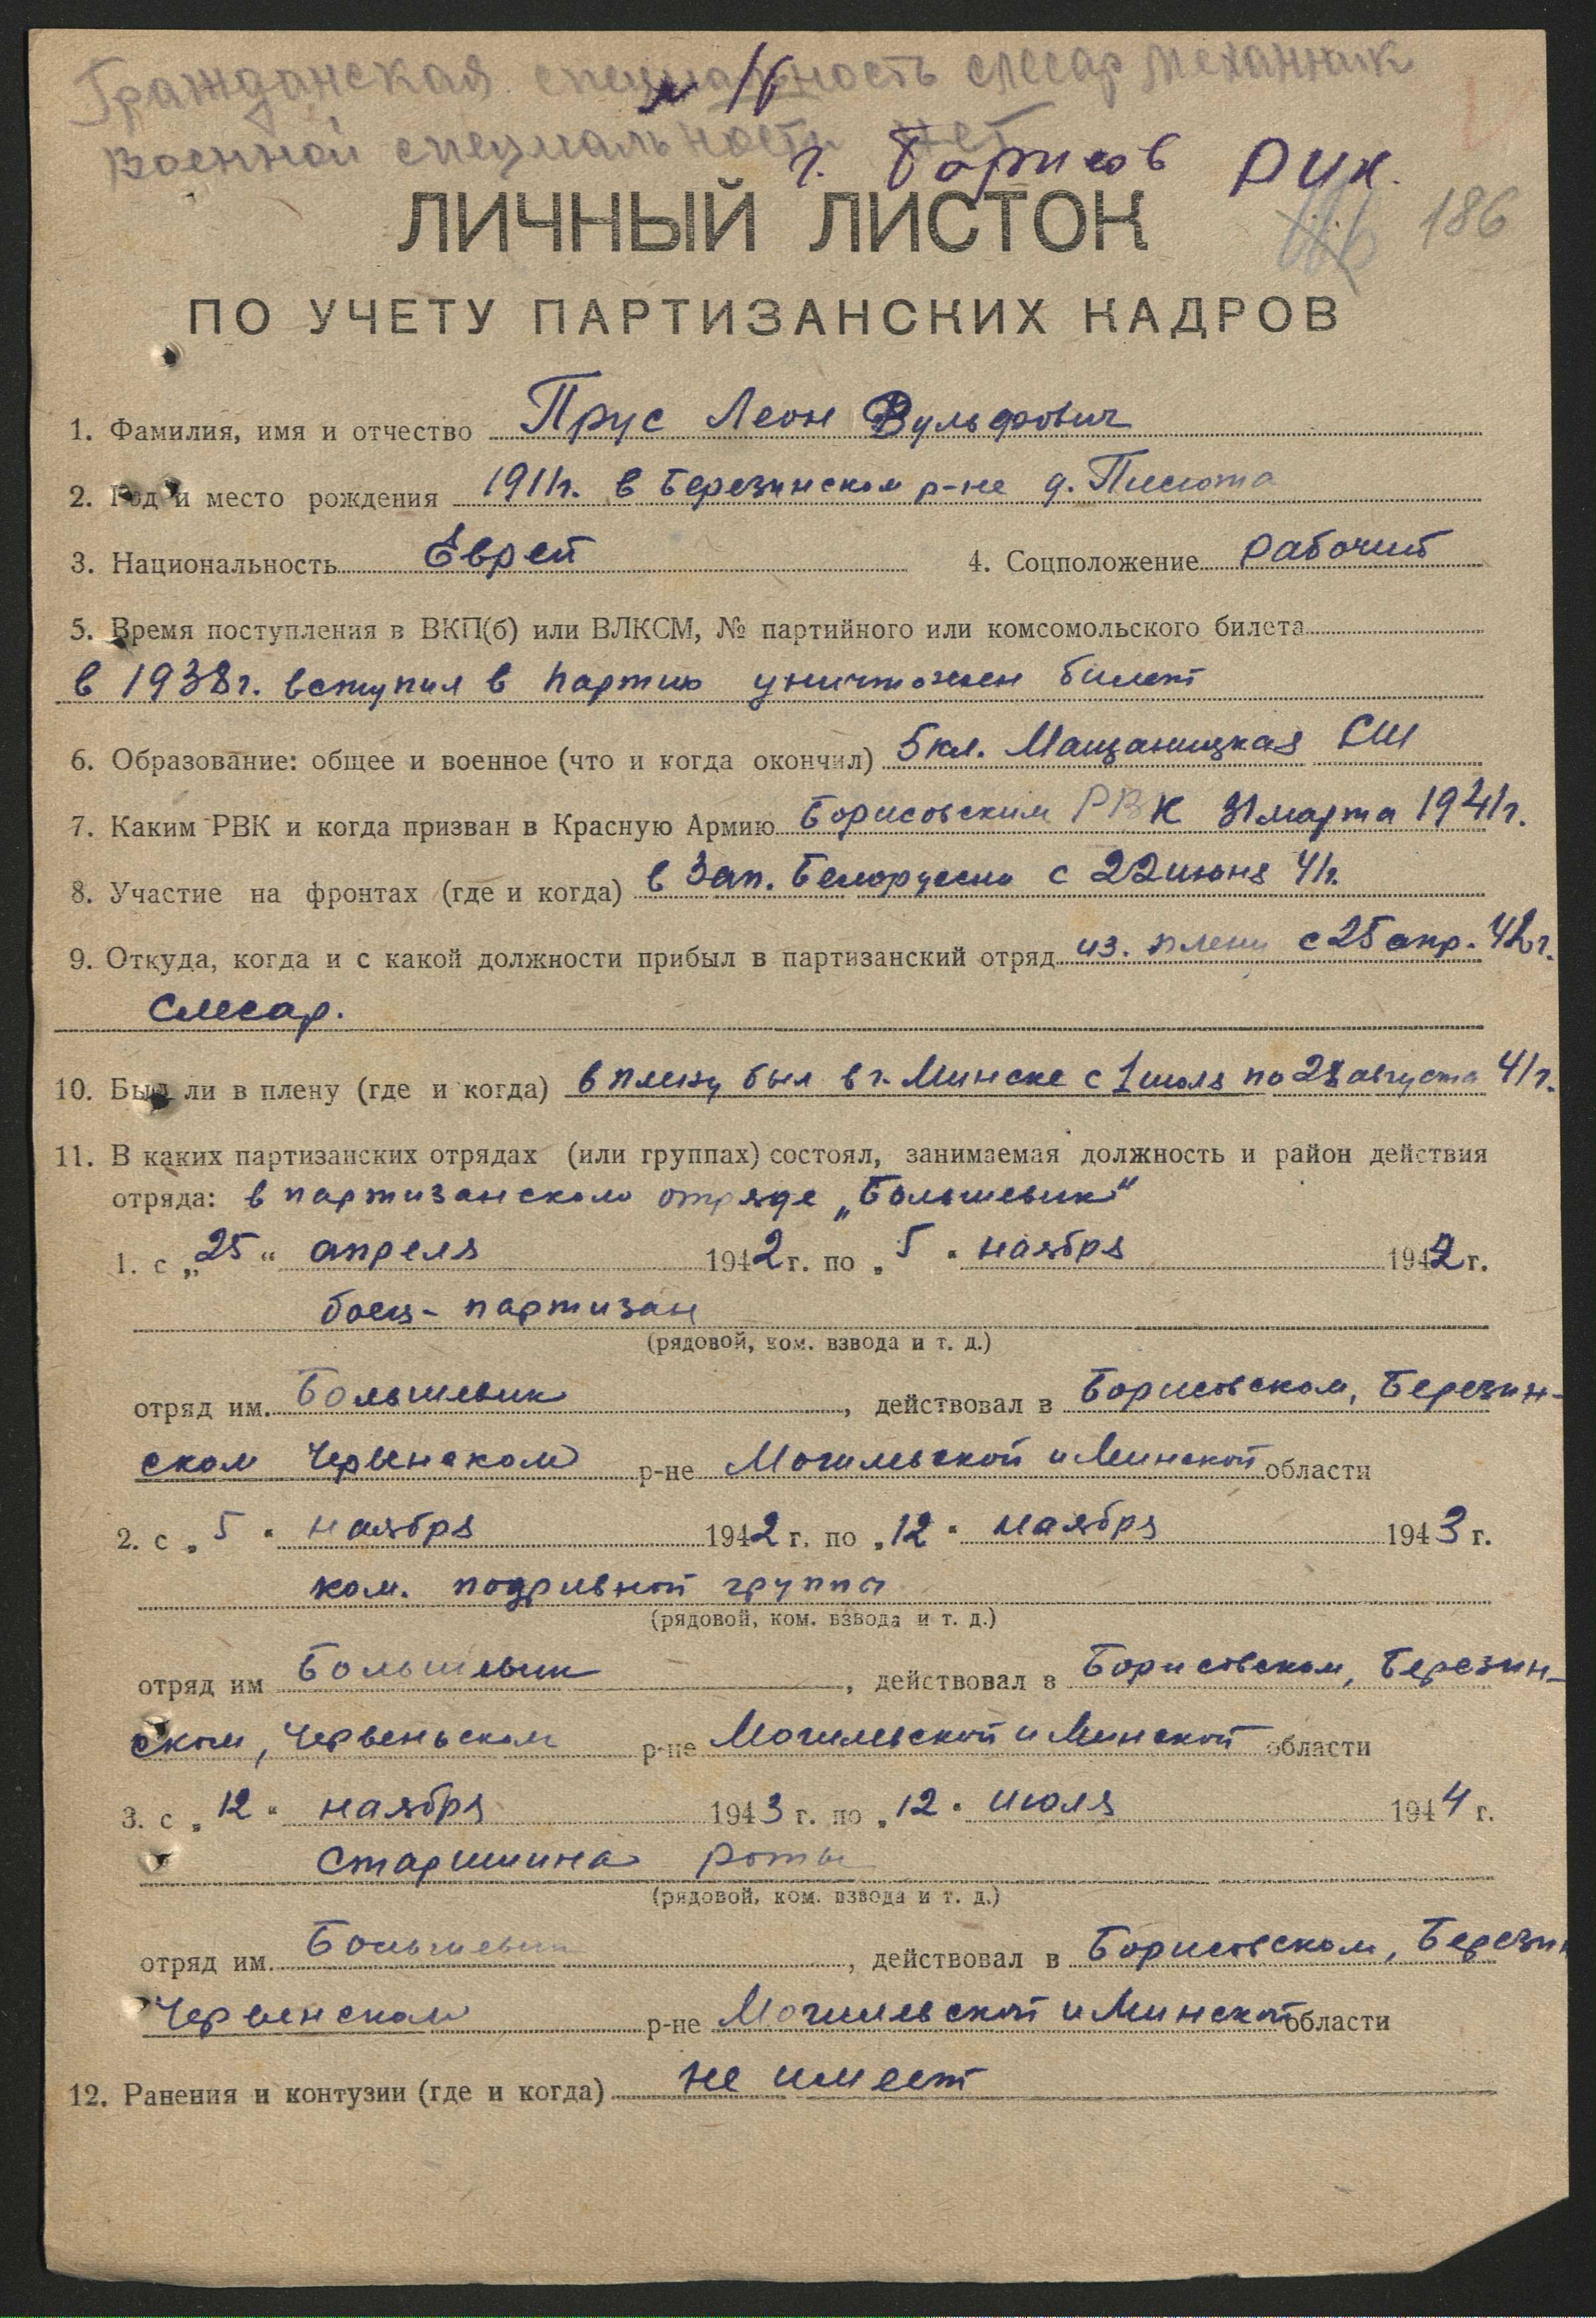 Гражданская специальность слесар механик
военной специальности нет
г. Борисов РИК.
186
ЛИЧНЫЙ ЛИСТОК
ПО УЧЕТУ ПАРТИЗАНСКИХ КАДРОВ
1. Фамилия, имя и отчество Прус Леон Вульфович
2. Год и место рождения 1911г. в Березинском р-не д. Писюта
3. Национальность Еврей 4. Соцположение рабочий
5. Время поступления в ВКП(б) или ВЛКСМ, № партийного или комсомольского билета
в 1938г. вступил в партию уничтожен билет
6. Образование: общее и военное (что и когда окончил) 5 кл. Мащаницкая СШ
7. Каким РВК и когда призван в Красную Армию Борисовским РВК 31 марта 1941г.
8. Участие на фронтах (где и когда) в Зап. Белоруссии с 22 июня 41г.
9. Откуда, когда и с какой должности прибыл в партизанский отряд из. плена с 25 апр. 42г.
Слесар.
10. Был ли в плену (где и когда) в плену был в г. Минске с 1 июля по 28 августа 41г.
11. В каких партизанских отрядах (или группах) состоял, занимаемая должность и район действия
отряда: в партизанском отряде „Большевик"
1. с „25" апреля 1942 г. по „5" ноября 1942 г.
боец - партизан
(рядовой, ком. взвода и т. д.)
отряд им. Большевик, действовал в Борисовском, Березин-
ском Червенском р-не Могилевской и Минской области
2. с „5" ноября 1942 г. по „12" ноября 1943 г.
ком. подривной группы
(рядовой, ком. взвода и т. д.)
отряд им Большевик, действовал в Борисовском, Березин-
ском, Червеньском р-не Могилевской и Минской области
3. с „12" ноября 1943 г. по „12" июля 1944 г.
Старшина роты
(рядовой, ком. взвода и т. д.)
отряд им. Большевик, действовал в Борисовском, Березин
Червенском р-не Могилевской и Минской области
12. Ранения и контузии (где и когда) не имеет